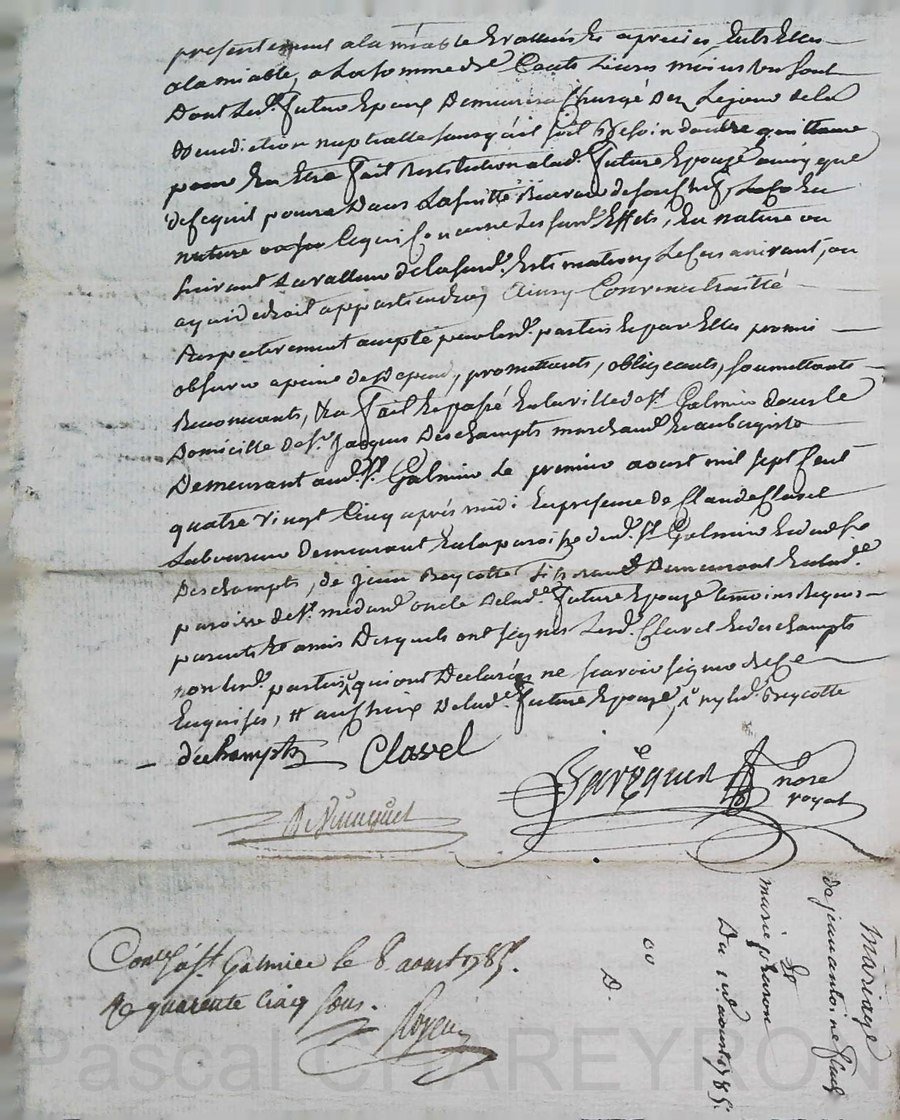 presentement a la miable Evalués & apreciés, Entr Elles
a lamiable, a La somme de Cents Livres moins un sout
Dont Led.t futur Epoux Demeurera Chargé Des Lejour de la
Benediction nuptialle sans qu'il soit Besoin d'autre quittance
pour En Etre fait Restitution alad.e future Epouze ainsy que
de ce quil poura Dans La suitte Recevoir de son Chef,
nature Cequi Concerne Les susd.s Effets, En nature ou
suivant La valleur de la susd.e Estimation, Le Cas arivant, ou
ayant droit appartiendra, Ainsy Convenu traitté
Respectivement accepté par lesd. parties & par Elles promis
observer a peine de Depend, promettants, obligeants, soumettants
Renoncants, &a fait & passé En la ville de St Galmier dans le
Domicille de sr. Jacques Deschampts marchand & aubergiste
Demeurant aud. St. Galmier Le premier aoust mil sept Cent
quatre vingt Cinq après midi En presence de Claude Clavel
Laboureur demeurant En la paroisse dud. St Galmier & dud. sr
Deschampts, de jean Reycotte Demeurant En lad.e
paroisse de St. medard oncle Delad.e future Epouze temoins Requis
parents & amis Desquels ont signés Lesd. Clavel & deschampts
non lesd. parties qui ont Declarés ne scavoir signer de Ce
Enquises, Delad.e future Epouze, ny led. Reycotte
déchampts Clavel
nore
royal
Conlé à St Galmier le 8 aoust 1785.
R quarente Cinq sous.
Mariage
de jean antoine
&
marie
Du 1er aoust 1785.